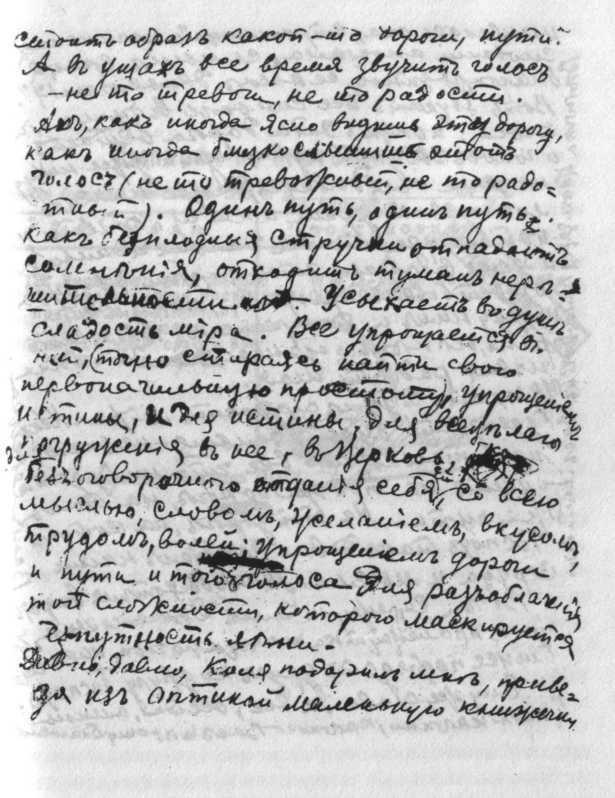 стоитъ образъ какой-то дороги, пути.
А въ ушахъ все время звучитъ голосъ
– не то тревоги, не то радости.
Ахъ, какъ иногда ясно видишь эту дорогу,
какъ иногда близко слышишь этотъ
голосъ (не то тревожный, не то радо-
стный). Одинъ путь, одинъ путь.
Какъ безплодныя стручки отпадаютъ
сомнѣнія, отходитъ туманъ нерѣ-
шительности. Усыхаетъ въ душѣ
сладость міра. Все упрощается въ
ней, (точно стараясь найти свою
первоначальную простоту), упрощеніемъ
истины, и для истины, для всецѣлаго
погруженія въ нее, въ Церковь,
для безъоговорочнаго отданія себя, со всею
мыслью, словомъ, желаніемъ, вкусомъ,
трудомъ, волей; упрощеніемъ дороги
и пути и того голоса для разъоблаченія
той сложности, которою маскируется
лжи.
Давно, давно, Коля подарилъ мнѣ, приве-
зя изъ Оптиной маленькую книжечку